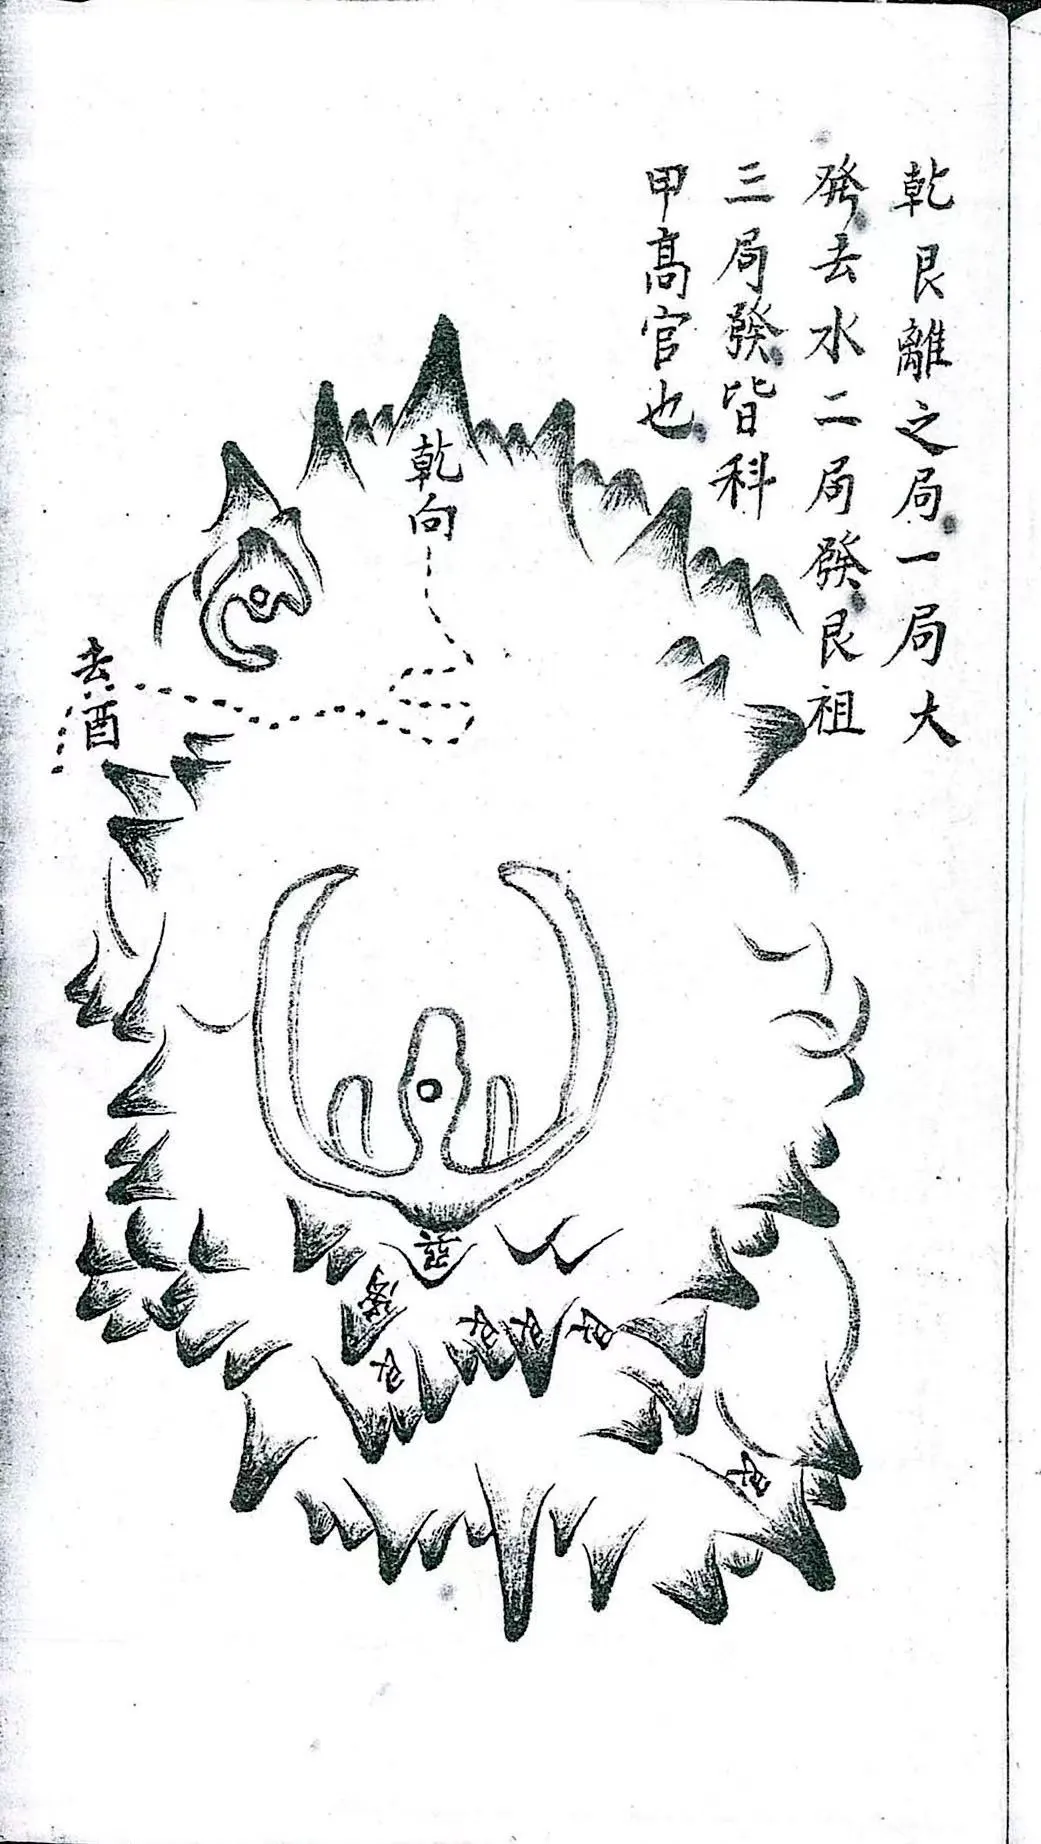 乾艮離之局一局大
發去水二局發艮祖
三局發皆科
甲高官也
乾向
去酉
巽